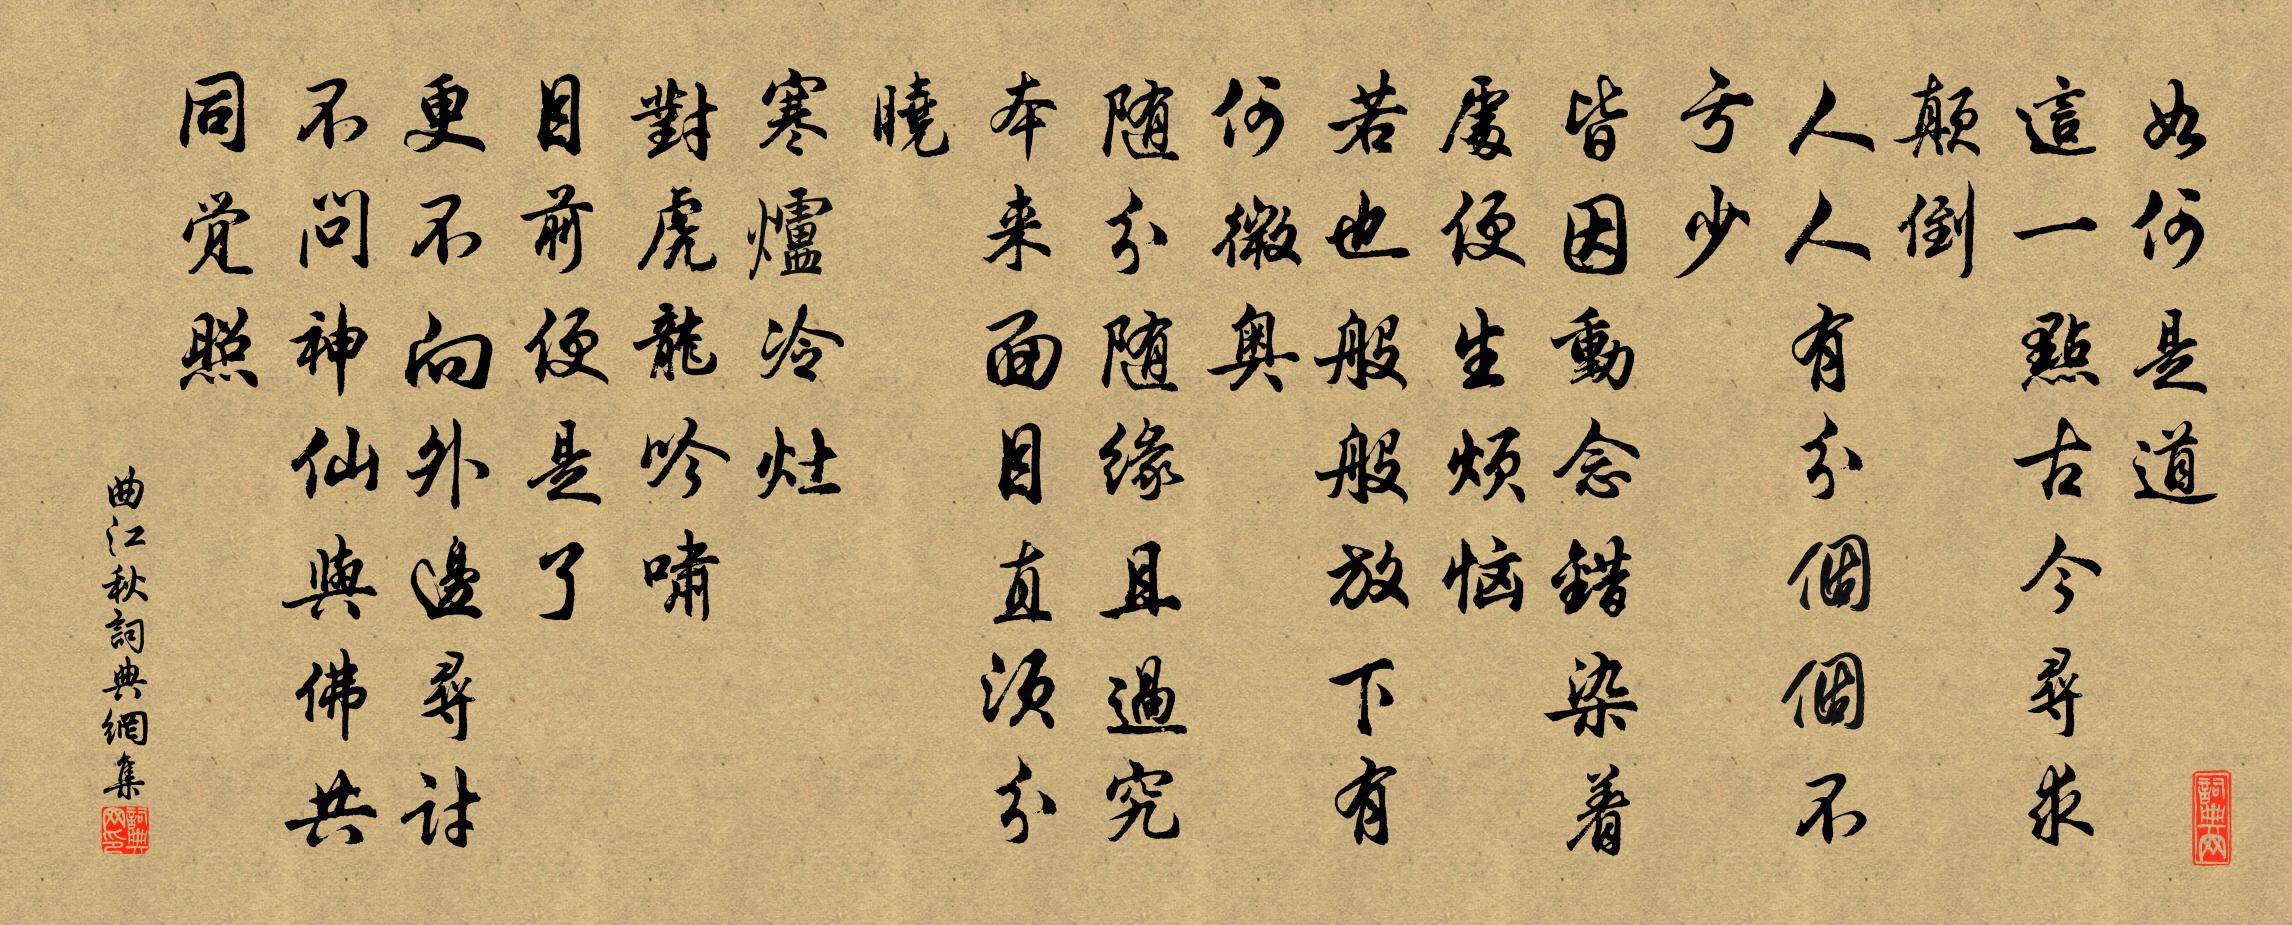 如何是道
這一點古今尋求
顛倒
人人有分個個不
亏少
皆因動念錯染着
處便生烦恼
若也般般放下有
何微奥
随分随缘且過究
本来面目直须分
曉
寒爐冷灶
對虎龍吟嘯
目前便是了
更不向外邊尋討
不问神仙與佛共
同觉照
曲江秋詞典網集
詞典网印
詞典网